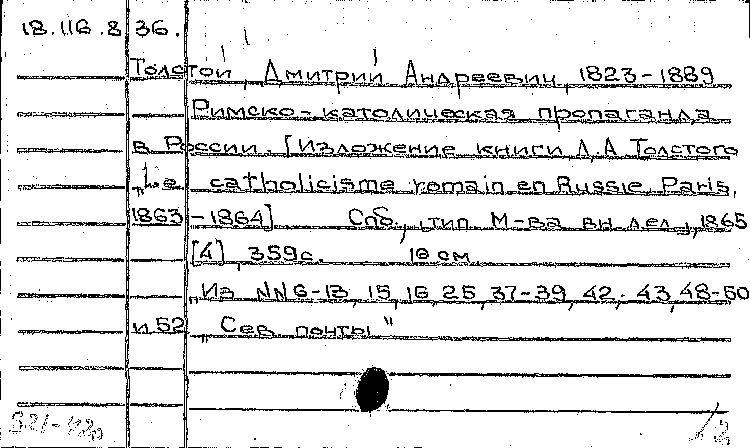 18.116.8 36.
Толстой, Дмитрий Андреевич, 1823-1889
Римско-католическая пропаганда
в России. [Изложение книги Д.А Толстого
„Le catholicisme romain en Russie. Paris,
1863-1864] Спб., тип. М-ва вн. дел, 1865
[4], 359 с. 16 см.
„Из NN 6-13, 15, 16, 25, 37-39, 42-43, 48-50
и 52 „Сев. почты"